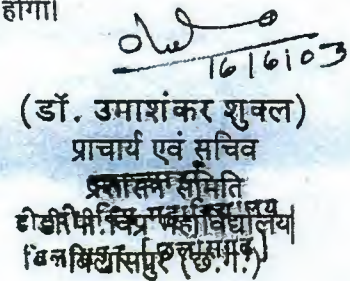 होगा।
16/6/03
(डॉ. उमाशंकर शुक्ल)
प्राचार्य एवं सचिव
समिति
महाविद्यालय
बिलासपुर (छ.ग.)